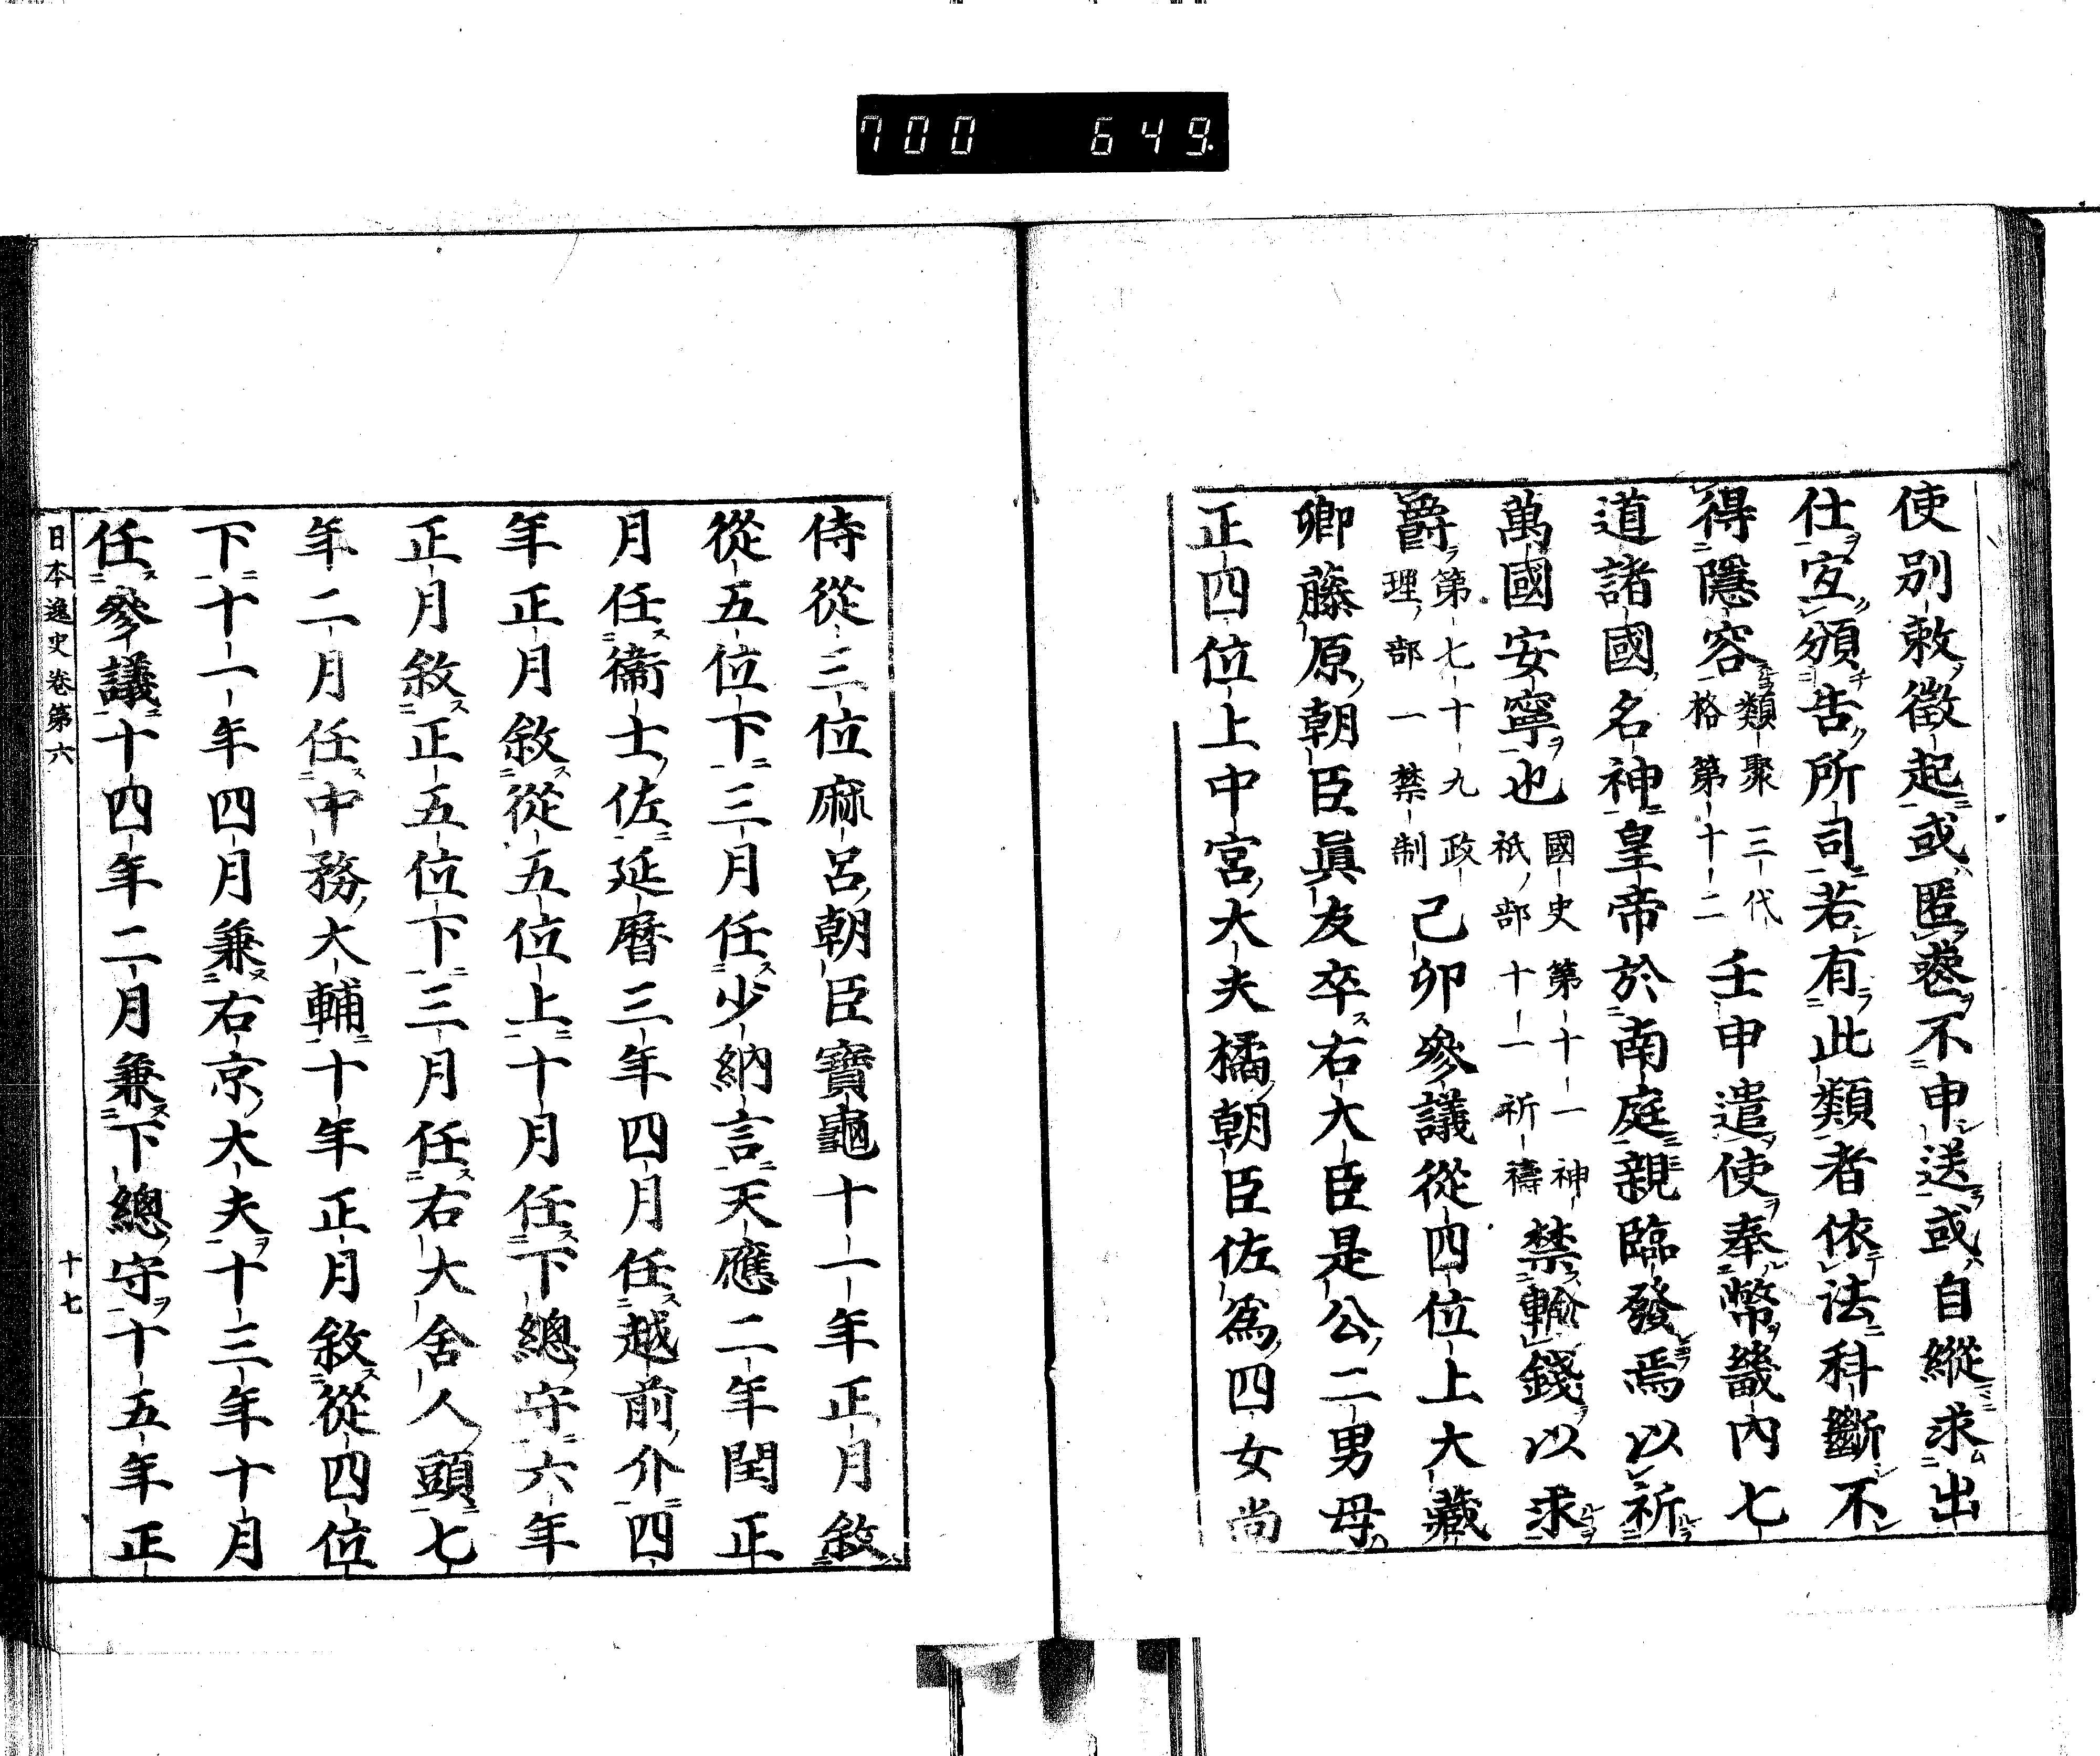 700 649
使別敕徵起或匿卷不申送或自縱求出
仕宜頒告所司若有此類者依法科斷不
得隱容類聚三代格第十二壬申遣使奉幣畿內七
道諸國名神皇帝於南庭親臨發焉以祈
萬國安寧也國史第十一神祇部十一祈禱禁輸錢以求
爵第七十九政理部一禁制己卯參議從四位上大藏
卿藤原朝臣眞友卒右大臣是公二男母
正四位上中宮大夫橘朝臣佐爲四女尚
侍從三位麻呂朝臣寶龜十一年正月敘
從五位下三月任少納言天應二年閏正
月任衞士佐延曆三年四月任越前介四
年正月敘從五位上十月任下總守六年
正月敘正五位下三月任右大舍人頭七
年二月任中務大輔十年正月敘從四位
下十一年四月兼右京大夫十三年十月
任參議十四年二月兼下總守十五年正
日本逸史卷第六 十七